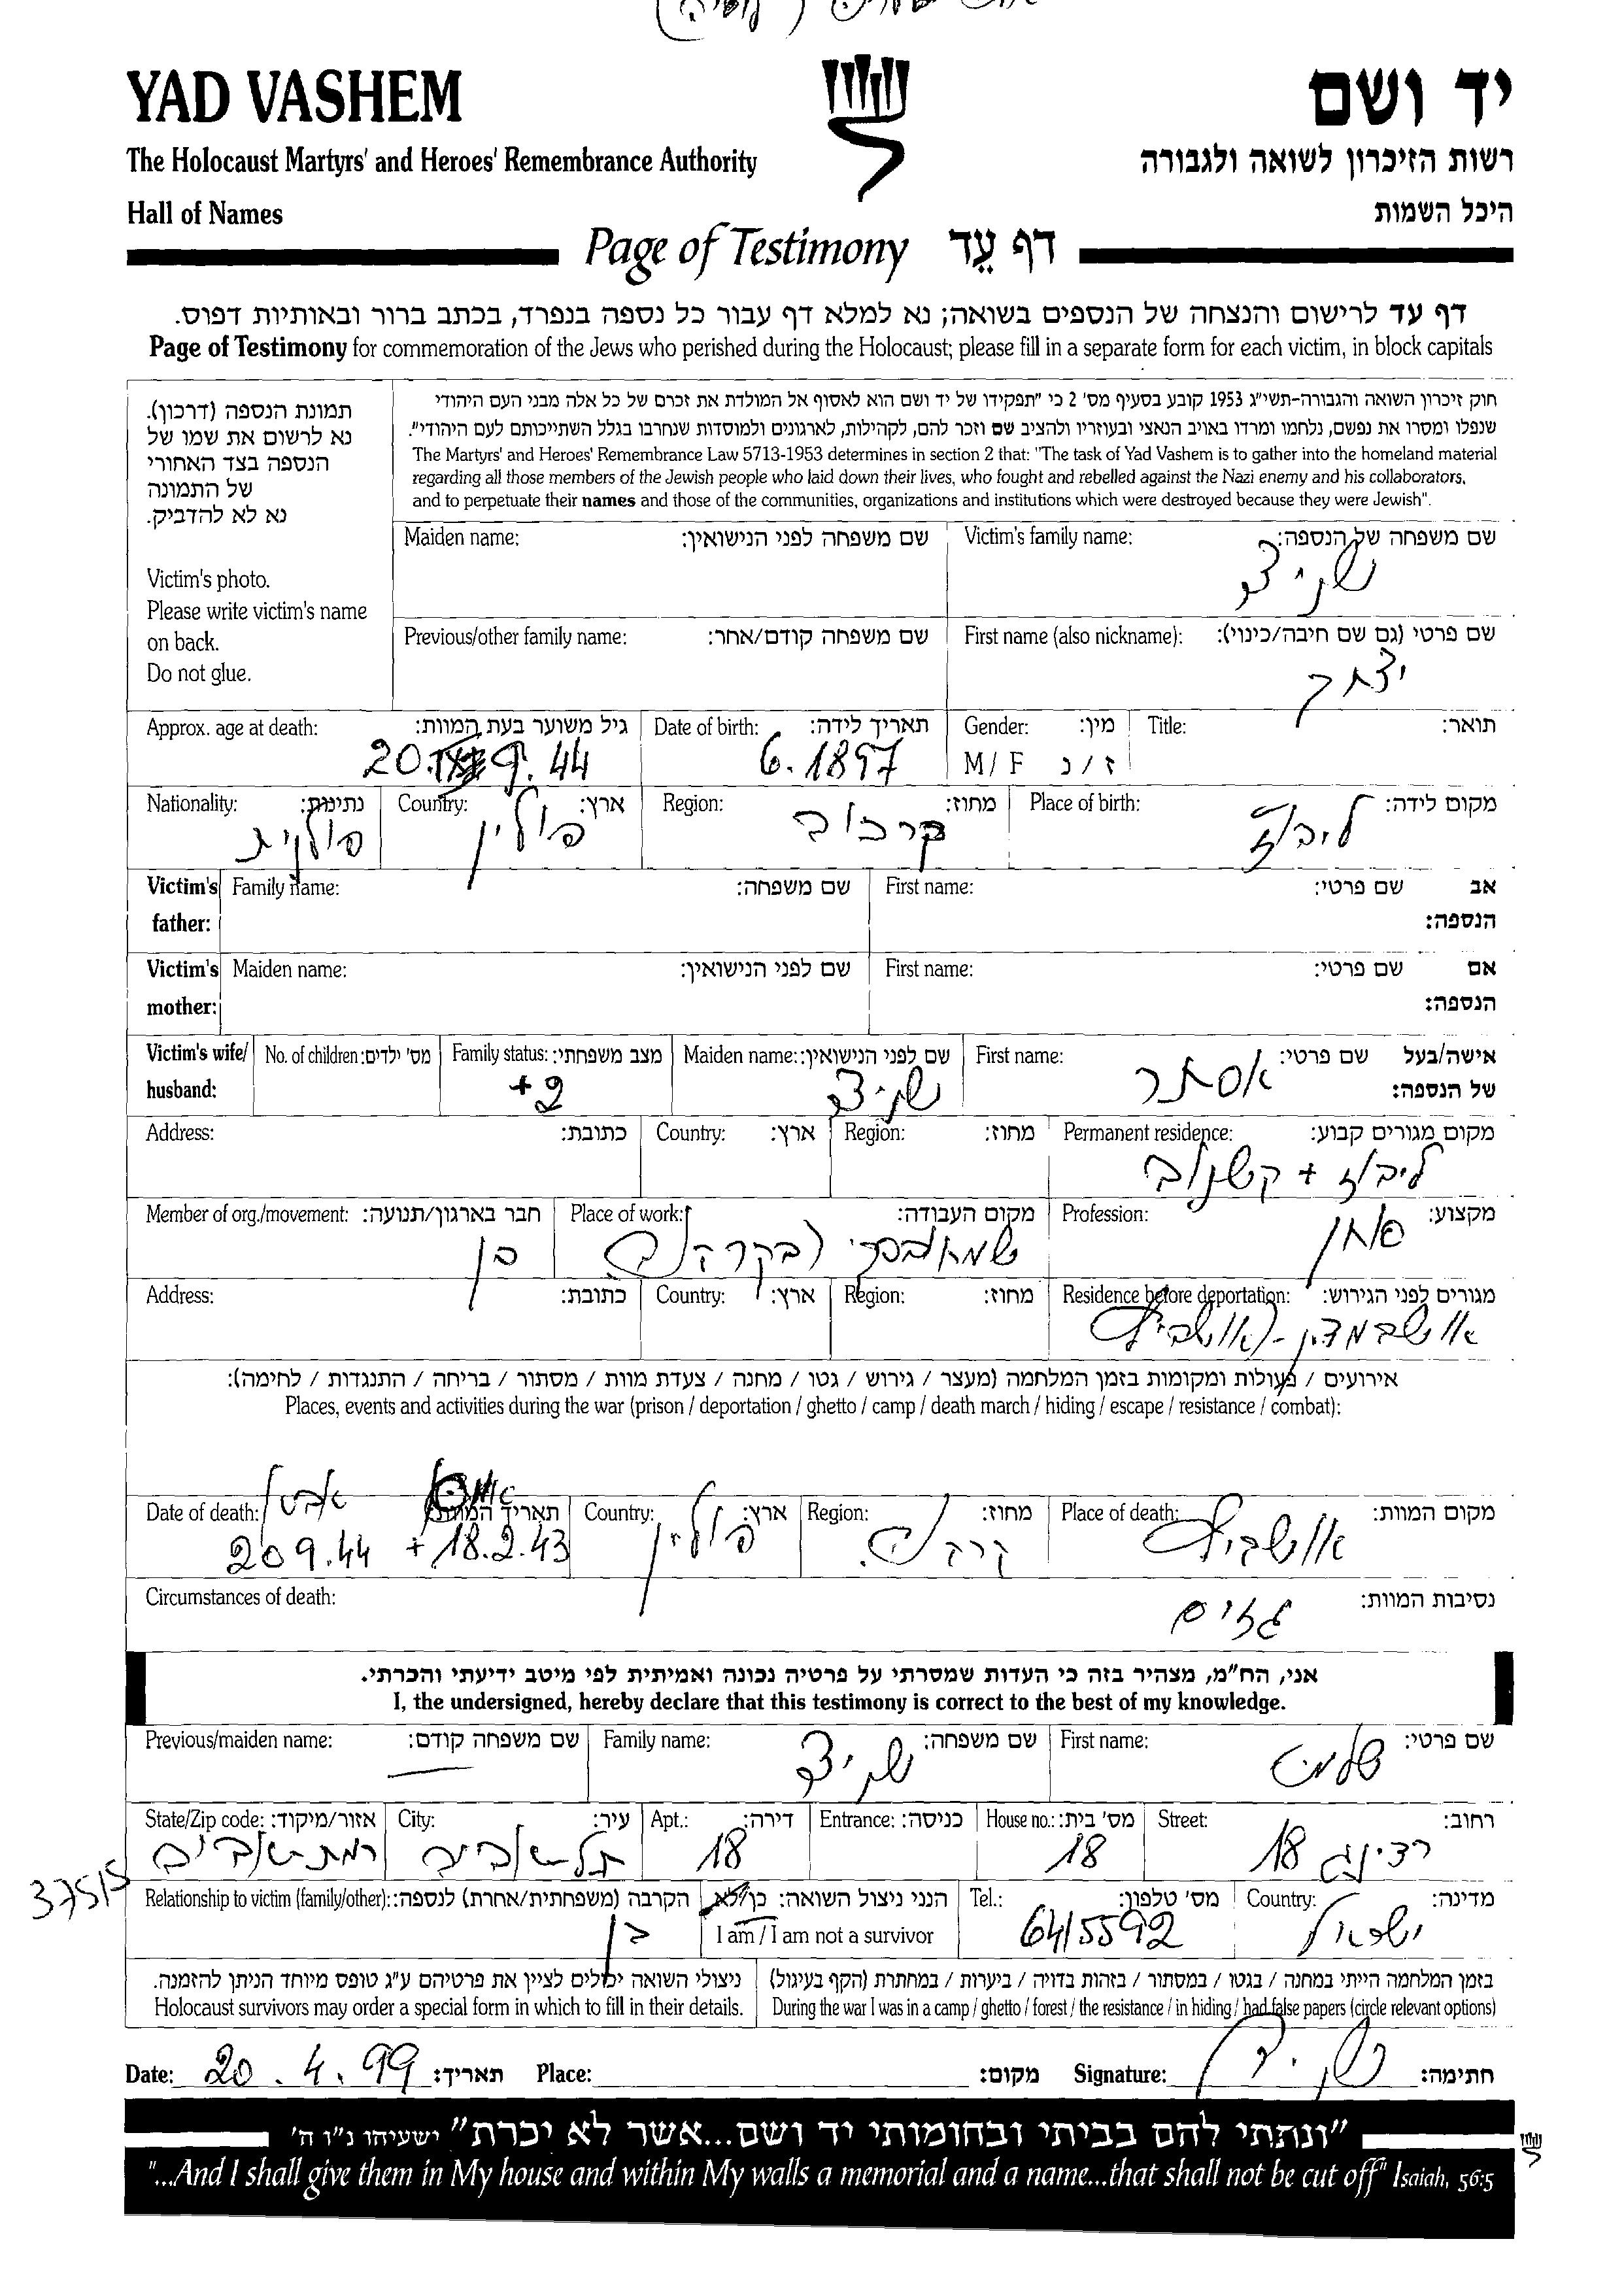 YAD VASHEM
יד ושם
The Holocaust Martyrs' and Heroes' Remembrance Authority
רשות הזיכרון לשואה ולגבורה
Hall of Names
היכל השמות
Page of Testimony דף עֵד
דף עד לרישום והנצחה של הנספים בשואה; נא למלא דף עבור כל נספה בנפרד, בכתב ברור ובאותיות דפוס.
Page of Testimony for commemoration of the Jews who perished during the Holocaust; please fill in a separate form for each victim, in block capitals
תמונת הנספה (דרכון).
נא לרשום את שמו של
הנספה בצד האחורי
של התמונה
נא לא להדביק.
Victim's photo.
Please write victim's name
on back.
Do not glue.
חוק זיכרון השואה והגבורה-תשי״ג 1953 קובע בסעיף מס' 2 כי "תפקידו של יד ושם הוא לאסוף אל המולדת את זכרם של כל אלה מבני העם היהודי
שנפלו ומסרו את נפשם, נלחמו ומרדו באויב הנאצי ובעוזריו ולהציב שם וזכר להם, לקהילות, לארגונים ולמוסדות שנחרבו בגלל השתייכותם לעם היהודי".
The Martyrs' and Heroes' Remembrance Law 5713-1953 determines in section 2 that: "The task of Yad Vashem is to gather into the homeland material
regarding all those members of the Jewish people who laid down their lives, who fought and rebelled against the Nazi enemy and his collaborators,
and to perpetuate their names and those of the communities, organizations and institutions which were destroyed because they were Jewish".
Victim's family name: שם משפחה של הנספה:
Maiden name: שם משפחה לפני הנישואין:
שניצ
First name (also nickname): שם פרטי (גם שם חיבה/כינוי):
Previous/other family name: שם משפחה קודם/אחר:
יצחק
Title: תואר:
Gender: מין:
Date of birth: תאריך לידה:
Approx. age at death: גיל משוער בעת המוות:
M / F ז / נ
6.1897
20. 9. 44
Place of birth: מקום לידה:
Region: מחוז:
Country: ארץ:
Nationality: נתינות:
ליבוז
קרקוב
פולין
פולנית
Victim's father: אב הנספה:
First name: שם פרטי:
Family name: שם משפחה:
Victim's mother: אם הנספה:
First name: שם פרטי:
Maiden name: שם לפני הנישואין:
Victim's wife/ husband: אישה/בעל של הנספה:
First name: שם פרטי:
Maiden name: שם לפני הנישואין:
Family status: מצב משפחתי:
No. of children: מס' ילדים:
אסתר
שניצ
+2
Permanent residence: מקום מגורים קבוע:
Region: מחוז:
Country: ארץ:
Address: כתובת:
ליבוז + קשנוב
Profession: מקצוע:
Place of work: מקום העבודה:
Member of org./movement: חבר בארגון/תנועה:
כן
Residence before deportation: מגורים לפני הגירוש:
Region: מחוז:
Country: ארץ:
Address: כתובת:
אירועים / פעולות ומקומות בזמן המלחמה (מעצר / גירוש / גטו / מחנה / צעדת מוות / מסתור / בריחה / התנגדות / לחימה):
Places, events and activities during the war (prison / deportation / ghetto / camp / death march / hiding / escape / resistance / combat):
Place of death: מקום המוות:
Region: מחוז:
Country: ארץ:
Date of death: תאריך המוות:
אושביץ
פולין
20 9.44 + 18.2.43
Circumstances of death: נסיבות המוות:
גזים
אני, הח״מ, מצהיר בזה כי העדות שמסרתי על פרטיה נכונה ואמיתית לפי מיטב ידיעתי והכרתי.
I, the undersigned, hereby declare that this testimony is correct to the best of my knowledge.
First name: שם פרטי:
Family name: שם משפחה:
Previous/maiden name: שם משפחה קודם:
שניצ
Street: רחוב:
House no.: מס' בית:
Entrance: כניסה:
Apt.: דירה:
City: עיר:
State/Zip code: אזור/מיקוד:
רדינג 18
18
18
תל אביב
רמת אביב
37515
Country: מדינה:
Tel.: מס' טלפון:
הנני ניצול השואה: כן/לא
I am / I am not a survivor
Relationship to victim (family/other): הקרבה (משפחתית/אחרת) לנספה:
ישראל
6415592
בן
בזמן המלחמה הייתי במחנה / בגטו / במסתור / בזהות בדויה / ביערות / במחתרת (הקף בעיגול)
During the war I was in a camp / ghetto / forest / the resistance / in hiding / had false papers (circle relevant options)
ניצולי השואה יכולים לציין את פרטיהם ע״ג טופס מיוחד הניתן להזמנה.
Holocaust survivors may order a special form in which to fill in their details.
Date: 20 . 4. 99 תאריך: Place: מקום: Signature: חתימה:
"ונתתי להם בביתי ובחומותי יד ושם...אשר לא יכרת" ישעיהו נ״ו ה'
"...And I shall give them in My house and within My walls a memorial and a name...that shall not be cut off" Isaiah, 56:5